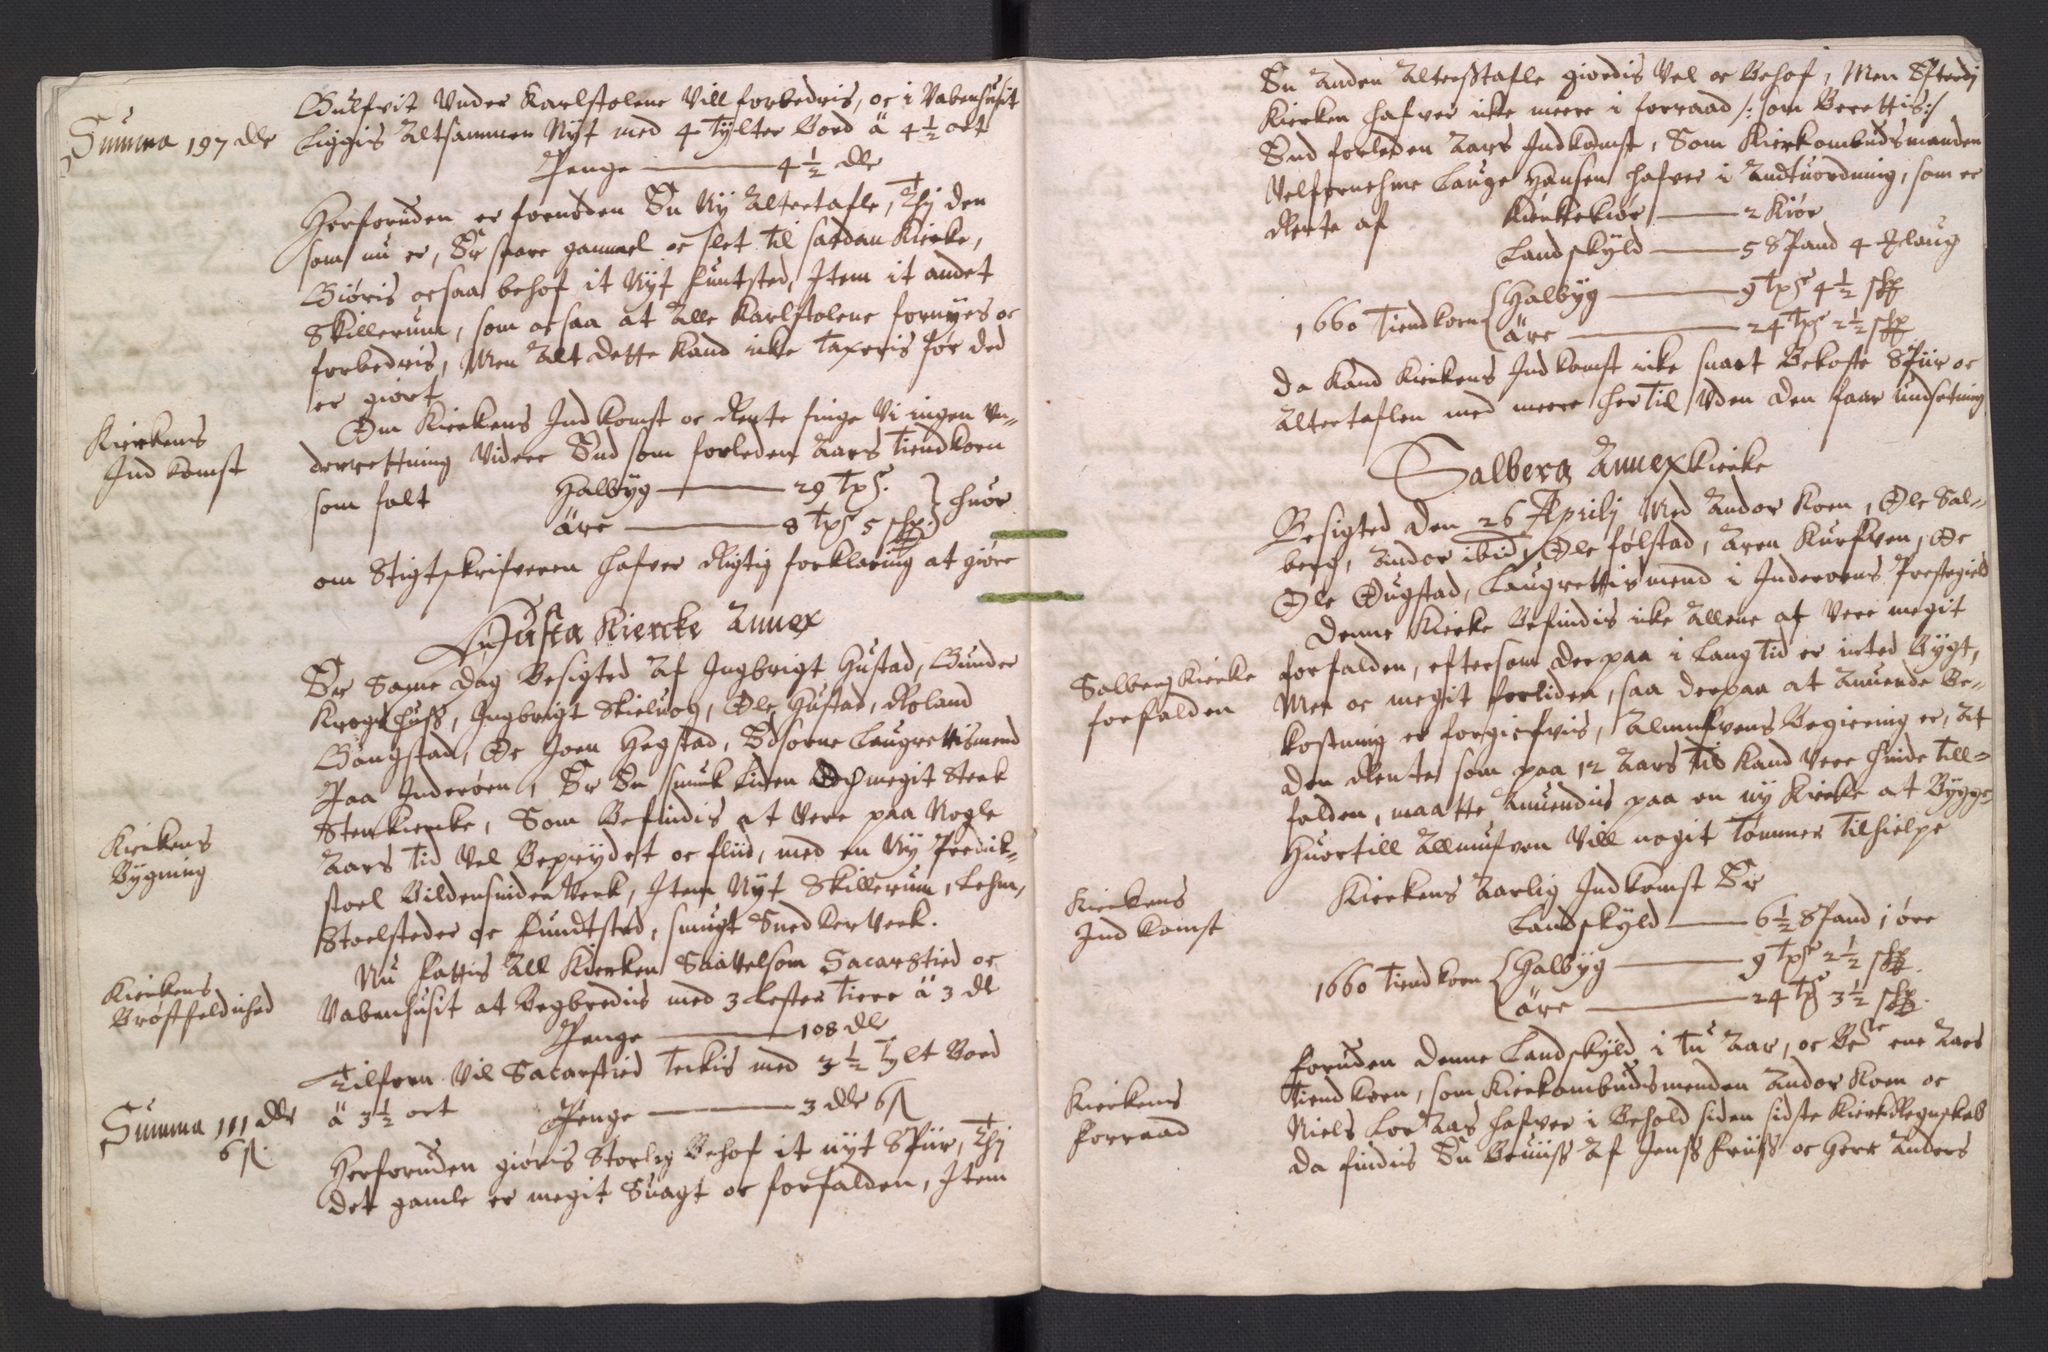 Summa 197 dlr
Gulfvit Under Karlstolene Vill forbedris, oc i Vabenhusit
Liggis Altsammen Nyt med 4 Tylter Bord â 4½ ort
Penge — 4½ dlr
Herforuden er fornøden En Ny Altertafle, Thj den
som nu er, Er saare gammel oc slet til saadan Kircke,
Giøris ocsaa behof it Nyt Funtsted, Item it andet
Skillerum, som ocsaa at Alle Karlstolene fornyes oc
forbedris, Men Alt dette Kand icke Taxeris før ded
er giort
Kirckens
Indkomst
Om Kirckens Indkomst oc Rente finge Vi ingen Un-
derrettning Videre End som forleden Aars Tiendkorn
som falt
Halbyg — 29 Tpd.
äre — 8 Tpd 5 schp.
huor
om Stigtskrifveren hafver Rigtig forklaring at giøre
Husta Kiercke Annex
Er Same dag Besigted Af Ingbrigt Hustad, Gunder
Kroghuss, Ingbrigt Skieluog, Ole Hustad, Roland
Gangstad, Oc Joen Hegstad, Edsorne Laugrettismend
Paa Inderøen, Er En smuk Liden Och megit Sterk
Kirckens
Bygning
Stenkircke, Som Befindis at Vere paa Nogle
Aars Tid Vel Beprydet oc fliid, med en Ny Predik-
stoel Bildensnider Verk, Item Nyt Skillerum, Lehn,
Stoelstader oc Fundtsted, smugt Snedker Verk.
Kirckens
Brøstfeldighed
Nu fattis All Kircken Saavelsom Sacarstied oc
Vabenhusit at Begbredis med 3 Lester Tiere â 3 dl
Penge — 108 dlr
Tilforn Vil Sacarstied Teckis med 3½ Tylt Bord
Summa 111 dlr
6 s.
â 3½ ort Penge — 3 dlr 6 s
Herforuden giøris Storlig Behof it nyt Spiir, Thj
det gamle er megit Suagt oc forfalden, Item
En Anden Altertafle giordis Vel oc Behof, Men Efterdj
Kircken hafver icke meere i forraad /: som Berettis :/
End forleden Aars Indkomst, Som Kirkombudsmanden
Velfornehme Lauge Hansen hafver i Andtuordning, som er
Rente af Kirckekiør — 2 Kiør
Landskyld — 5 Spand 4
1660 Tiendkorn Halbyg — 9 Tpd 4½ schp
äre — 24 Tpd 2½ schp
da Kand Kirckens Indkomst icke snart Bekoste Spiir oc
Altertaflen med meere hertil Uden den faar Undsetning
Salberg Annex Kircke
Besigted den 26 Aprilj Med Andor Koen, Ole Sal-
berg, Andor ibid, Ole Følstad, Aren Kurfven, Oc
Ole Ougstad, Laugrettismend i Inderøens Prestegield
Salberg Kircke
forfalden
Denne Kircke Befindis icke Allene at Vere megit
forfalden, eftersom der paa i Lang tid er inted Bygt,
Men oc megit forliden, saa derpaa at Anvende Be-
kostning er forgiefvis, Almufvens Begiering er, At
den Rente som paa 12 Aars Tid Kand Vere hinde till-
falden, maatte Anuendis paa en ny Kircke at Bygge,
Huortill Allmufven Vill nogit Tømmer tilhielpe
Kirckens
Indkomst
Kirckens Aarlig Indkomst Er
Landskyld — 6½ Spand 1 øre
1660 Tiendkorn Halbyg — 9 Tpd 2½ schp.
äre — 24 Tpd 3½ schp.
Kirckens
Forraad
Foruden denne Landskyld i Tu Aar, oc ene Aars
Tiendkorn, som Kirkombudsmenden Andor Koen oc
Niels hafver i Behold siden sidste Kirk Regnskab
da findis En Beviiss Af Jenss Friiss oc Herr Anders